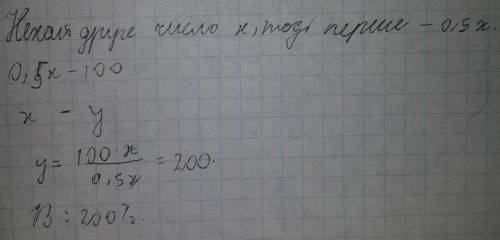 Нехай друге число x, тоді перше – 0,5x.
0,5x – 100
x – y
y = 100·x / 0,5x = 200.
В: 200%.